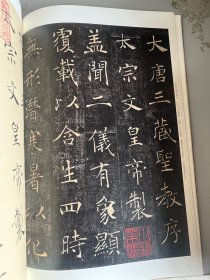 大唐三藏聖教序
太宗文皇帝製
盖聞二儀有象顯
覆載以含生四時
無形潛寒暑以化
宗文皇帝製